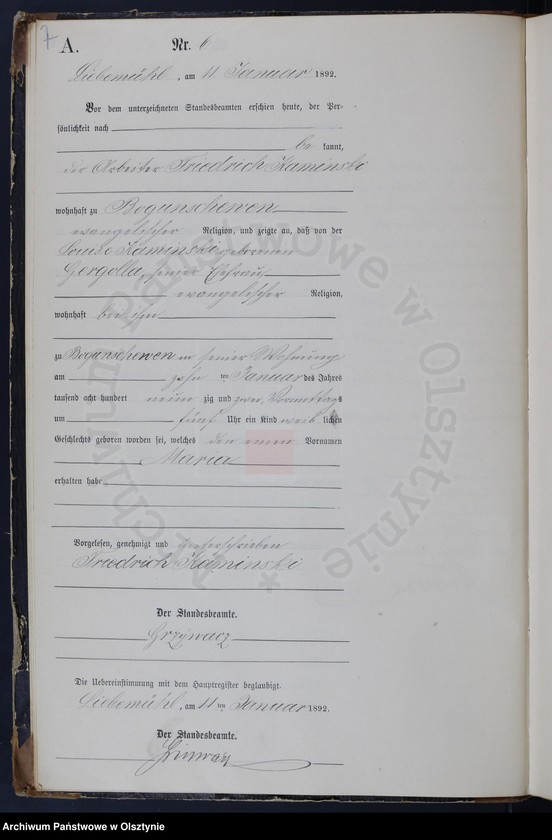 7
A.
Nr. 6
Liebemühl, am 11 Januar 1892.
Vor dem unterzeichneten Standesbeamten erschien heute, der Per-
sönlichkeit nach
be kannt,
der Arbeiter Friedrich Kaminski
wohnhaft zu Bogunschewen
evangelischer Religion, und zeigte an, daß von der
Louise Kaminski geborenen
Gorgolla, seiner Ehefrau
evangelischer Religion,
wohnhaft bei ihm
zu Bogunschewen in seiner Wohnung
am zehn ten Januar des Jahres
tausend acht hundert neun zig und zwei, Vormittags
um fünf Uhr ein Kind weib lichen
Geschlechts geboren worden sei, welches den einen Vornamen
Maria
erhalten habe
Vorgelesen, genehmigt und unterschrieben
Friedrich Kaminski
Der Standesbeamte.
Grzywacz
Die Uebereinstimmung mit dem Hauptregister beglaubigt.
Liebemühl, am 11 ten Januar 1892.
Der Standesbeamte.
Archiwum Państwowe w Olsztynie
Archiwum Państwowe w Olsztynie